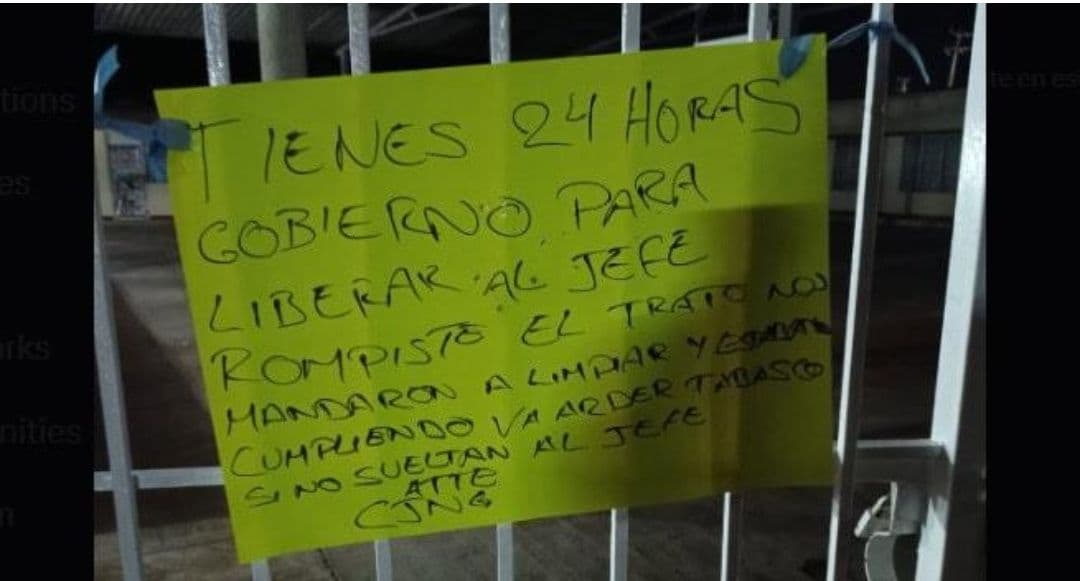 TIENES 24 HORAS
GOBIERNO PARA
LIBERAR AL JEFE
ROMPISTE EL TRATO NOS
MANDARON A LIMPIAR Y
CUMPLIENDO VA ARDER TABASCO
SI NO SUELTAN AL JEFE
ATTE
CJNG